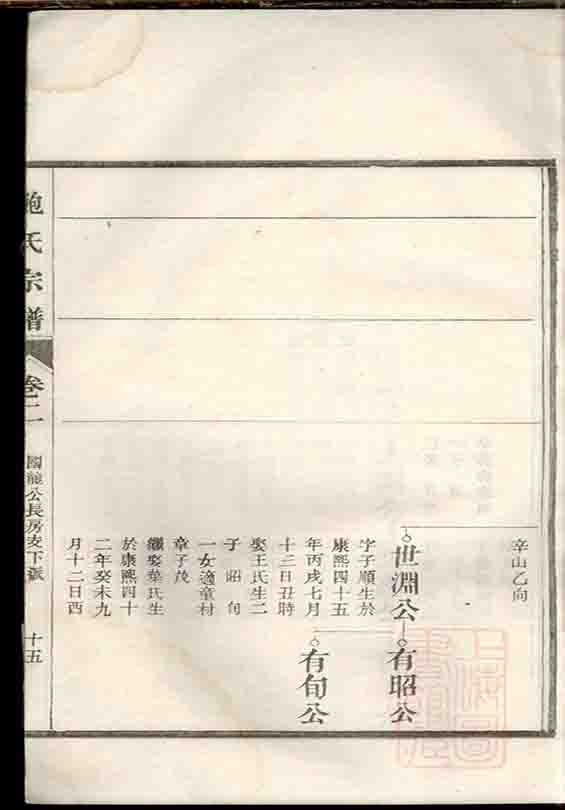 辛山乙向
世淵公
有昭公
有旬公
字子順生於
康熙四十五
年丙戌七月
十三日丑時
娶王氏生二
子昭旬
一女適童村
章子茂
繼娶葉氏生
於康熙四十
二年癸未九
月十二日酉
鮑氏宗譜
卷二
國龍公長房支下派
十五